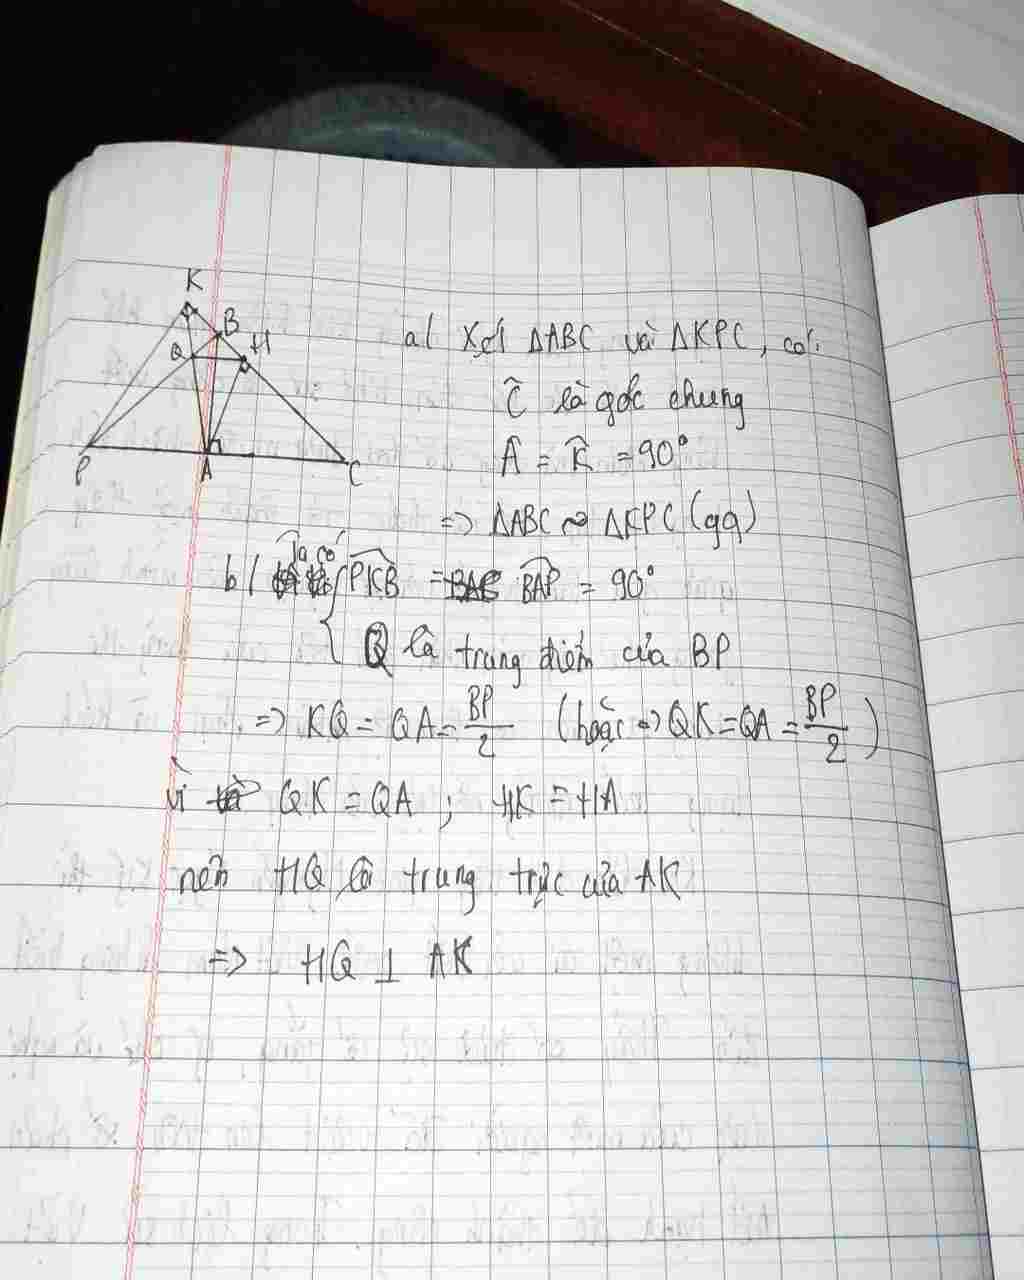 K
B
Q
H
P
A
C
a/ Xét ΔABC và ΔKPC, có:
Ĉ là góc chung
Â = K̂ = 90°
=> ΔABC ~ ΔKPC (gg)
b/ Ta có { PKB = BAP = 90°
Q là trung điểm của BP
=> KQ = QA = BP/2 (hoặc => QK = QA = BP/2)
Vì QK = QA ; HK = HA
nên HQ là trung trực của AK
=> HQ ⊥ AK